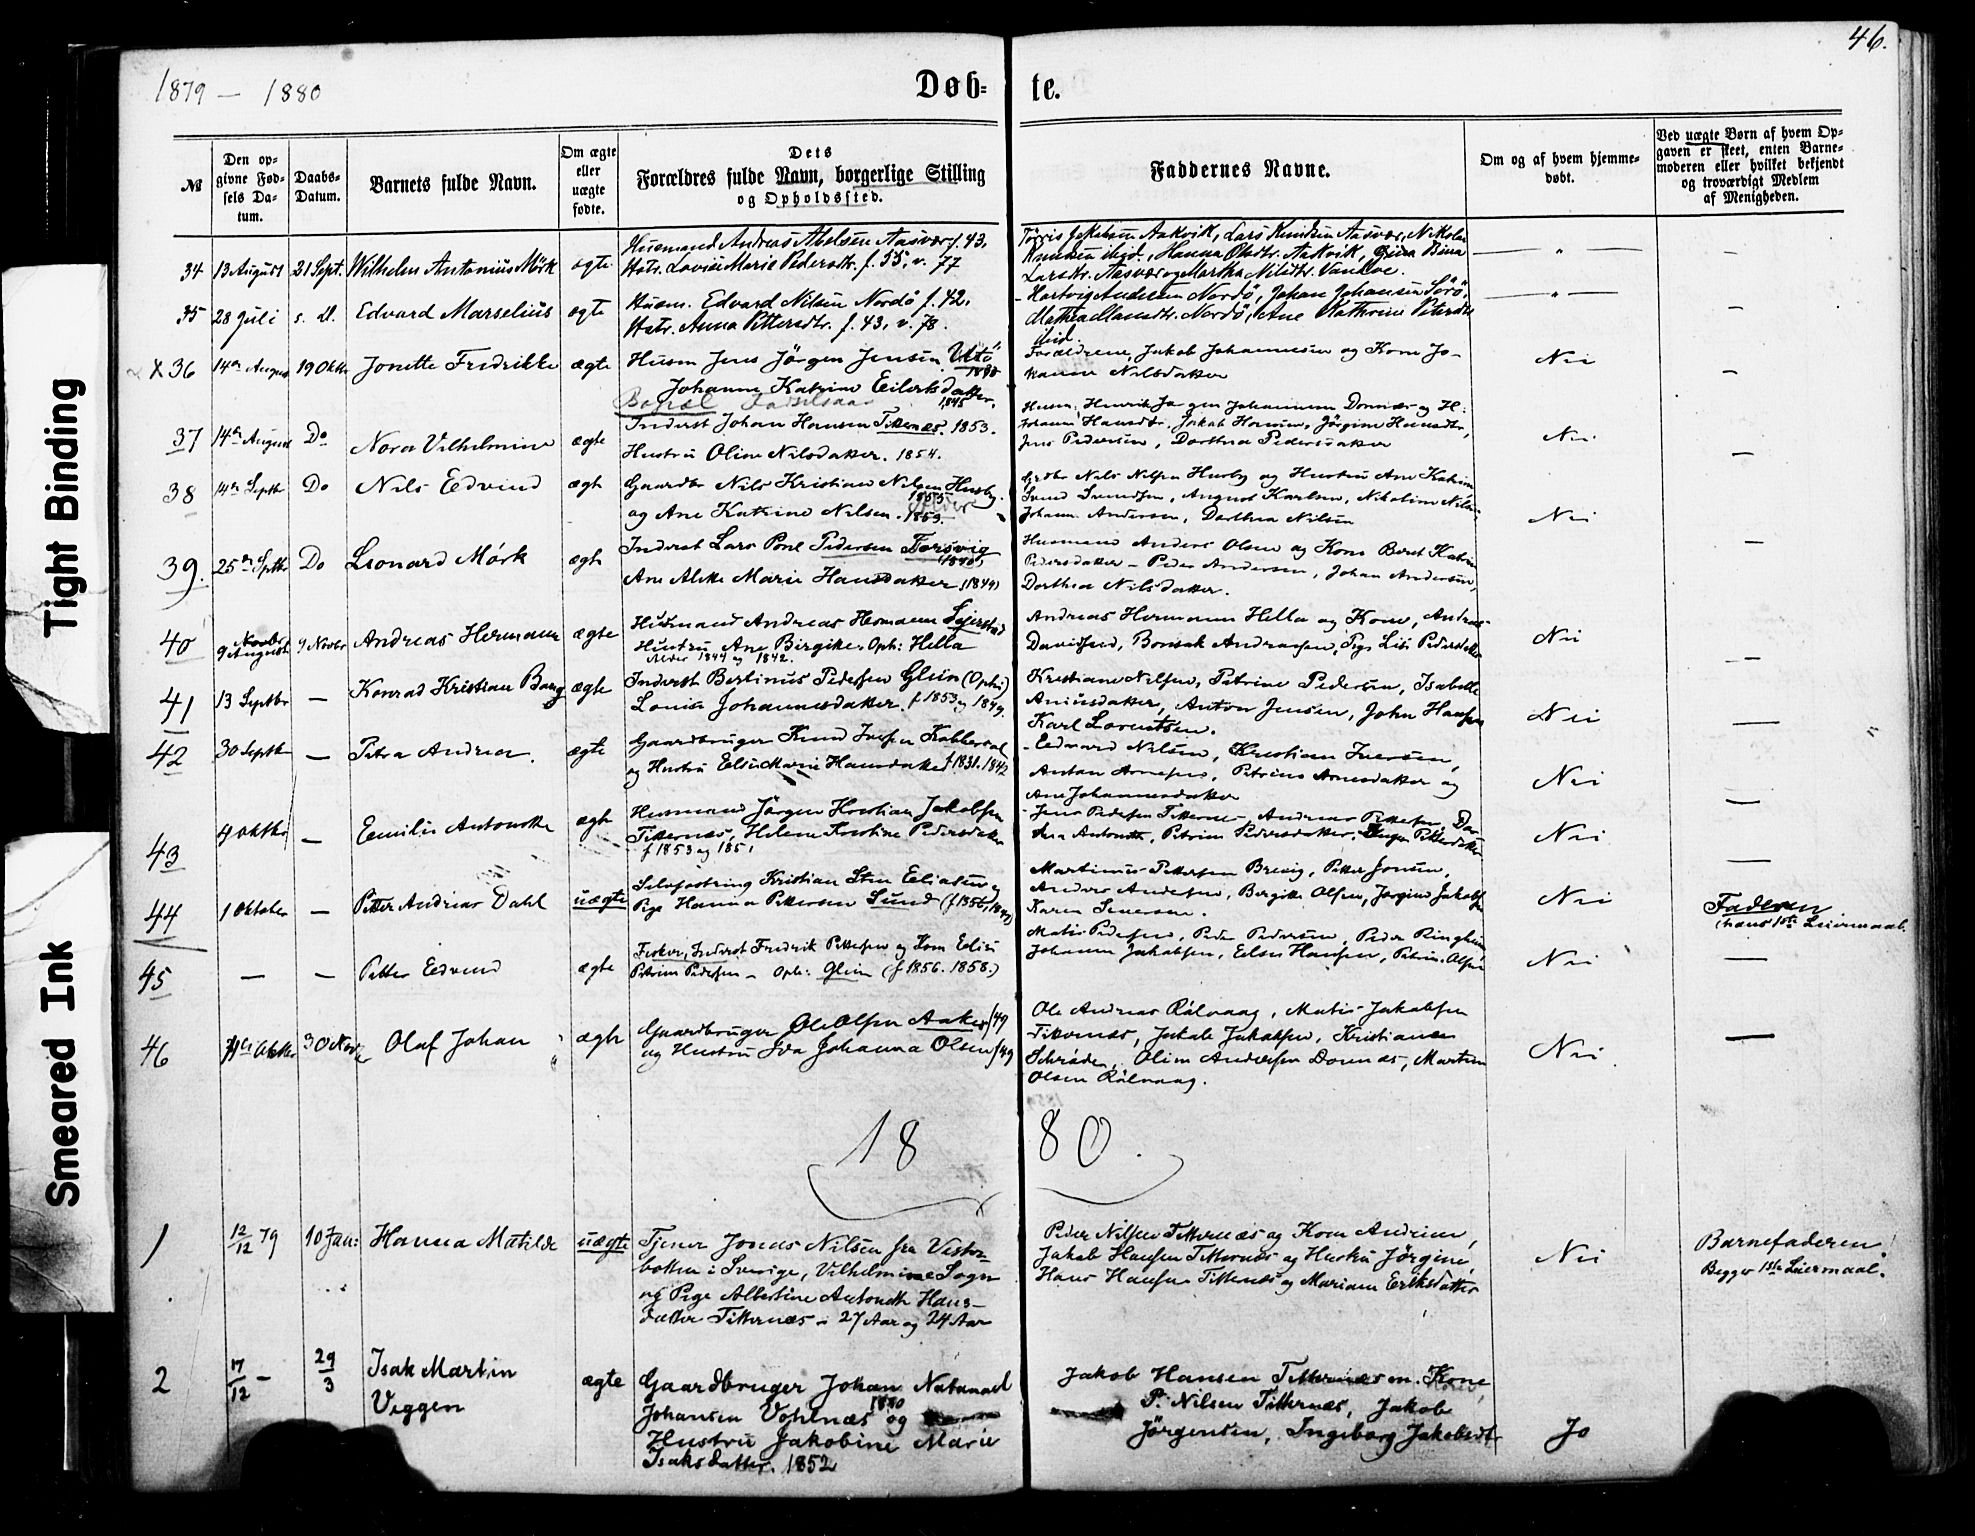 46.
1879 — 1880
Døb= te.
№
Den opgivne Fødsels Datum.
Daabs-Datum.
Barnets fulde Navn.
Om ægte eller uægte fødte.
Dets Forældres fulde Navn, borgerlige Stilling og Opholdssted.
Faddernes Navne.
Om og af hvem hjemmedøbt.
Ved uægte Børn af hvem Opgaven er skeet, enten Barnemoderen eller hvilket bekjendt og troværdigt Medlem af Menigheden.
34 13 August 21 Sept. Wilhelm Antonius Mørk ægte
Husmand Andreas Abelsen Aasvær f. 43.
Hstr. Lovise Marie Pedersdtr. f. 55, v. 77
Aakvik, Lars Knudsen Aasvær, Nikolai
Knudsen ibid., Hanna Olsdtr. Aakvik,
Larsdtr. Aasvær og Martha Nilsdtr.
35 28 Juli s. D. Edvard Marselius ægte
Husm. Edvard Nilsen Nordø f. 42.
Hstr. Anna Pettersdtr. f. 43, v. 78.
Hartvig Andersen Nordø, Johan Johansen Sørø,
Mathea Hansdtr. Nordø, Ane Kathrine
ibid.
X 36 14de August 19 Oktbr Jonette Fredrikke ægte
Husm Jens Jørgen Jensen
Johanne Katrine Eilertsdatter.
1845
Forældrene, Jakob Johannesen og Kone Johanna Nilsdatter
Nei
37 14de August Do Nora Vilhelmine ægte
Inderst Johan Hansen Titternæs. 1853.
Hustru Oline Nilsdatter. 1854.
Husm. Henrik Jørgen Johannesen Dønnæs og H:
Johanna Hansdtr, Jakob Hansen, Jørgine Hansdtr,
Jens Pedersen, Dorthea Pedersdatter
Nei
38 14de Septbr Do Nils Edvind ægte
Gaardbr Nils Kristian Nilsen Husby.
1855
og Ane Katrine Nilsen. 1859.
Grdbr Nils Nilsen Husby og Hustru Ane Katrine
August Karlsen, Nikoline
Johann Andersen, Dorthea Nilsen
Nei
39. 25de Septbr Do Leonard Mørk ægte
Inderst Lars Povl Pedersen Forsvig
1840
Ane Aleke Marie Hansdatter (1849)
Husmand Anders Olsen og Kone Beret Katrine
Pedersdatter — Peder Andersen, Johan Andersen,
Dorthea Nilsdatter.
40 9 August 9 Novbr Andreas Hermann ægte
Husmand Andreas Hermann
Hustru Ane Birgitte. Oph: Hella
Alder 1844 og 1842.
Andreas Hermann Hella og Kone, Andreas
Davidsen, Bonsak Andreassen, Pige Lise Pedersdatter
Nei
41 13 Septbr — Konrad Kristian Bang ægte
Inderst Bertinus Pedersen Glein (Oph:)
Lovise Johannesdatter. f 1853 og 1849.
Kristiane Nilsen, Petrine Pedersen, Isabelle
Aniusdatter, Anton Jensen, John Hansen
Karl Lorentsen.
Nei
42 30 Septbr — Petra Andrea. ægte
Gaardbruger Knud Iversen Kobberdal
og Hustru Else Marie Hansdatter f 1831. 1842
Edvard Nilsen, Kristian Iversen,
Antan Arnesen, Petrine Arnesdatter og
Ane Johannesdatter
Nei
43 4 Oktbr — Emilie Antonette ægte
Husmand Jørgen Kristian Jakobsen
Titternæs, Helene Kristine Pedersdatter
f 1853 og 1851
Jens Pedersen Titternæs, Andreas Pettersen,
Petrine Pedersdatter,
Nei
44 1 Oktober — Petter Andreas Dahl uægte
Kristian Sten Eliasen og
Pige Hanna Pettersen Lund
Martinus Pettersen Breivig, Petter Jonsen,
Anders Andersen, Bergitte Olsen, Jørgine Jakobsen
Karen Iversen.
Nei
Faderen
(hans 1ste Leiermaal.
45 — — Petter Edvend ægte
Fisker, Inderst Fredrik Pettersen og Kone Elise
Petrine Pedersen — Oph: Glein (f 1856. 1858.)
Matis Pedersen, Peder Pedersen, Peder Ringheim
Johanna Jakobsen, Else Hansen, Petrine Olsen
Nei
46 30 Novbr Olaf Johan ægte
Gaardbruger Ole Olsen Aaker f 49
og Hustru Ida Johanna Olsen f 49
Ole Andreas Rølvaag, Matis Jakobsen
Titternæs, Jakob Jakobsen, Kristianen
Schrøder, Oline Andersen Dønnæs, Martin
Olsen Rølvaag.
Nei
18 80.
1 12/12 79 10 Jan: Hanna Matilde uægte
Tjener Jonas Nilsen fra Vesterbotten i Sverige, Vilhelmine Sogn
og Pige Albertine Antonette Hansdatter Titternæs — 27 Aar og 24 Aar
Peder Nilsen Titternæs og Kone Andrine,
Jakob Hansen Titternæs og Hustru Jørgine,
Hans Hansen Titternæs og Mariane Eriksdatter
Nei
Barnefaderen.
Begges 1ste Leiermaal.
2 17/12 — 29/3 Isak Martin
Viggen ægte
Gaardbruger Johan Natanael
1850
Johansen Vohlnæs og
Hustru Jakobine Marie
Isaksdatter. 1852
Jakob Hansen Titternæs m. Kone
P. Nilsen Titternæs, Jakob
Jørgensen, Ingeborg Jakobsdtr
Jo
Tight Binding
Smeared Ink